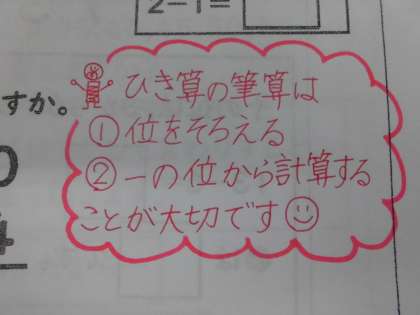 2-1=
すか。
ひき算の筆算は
①位をそろえる
②一の位から計算する
ことが大切です
0
4